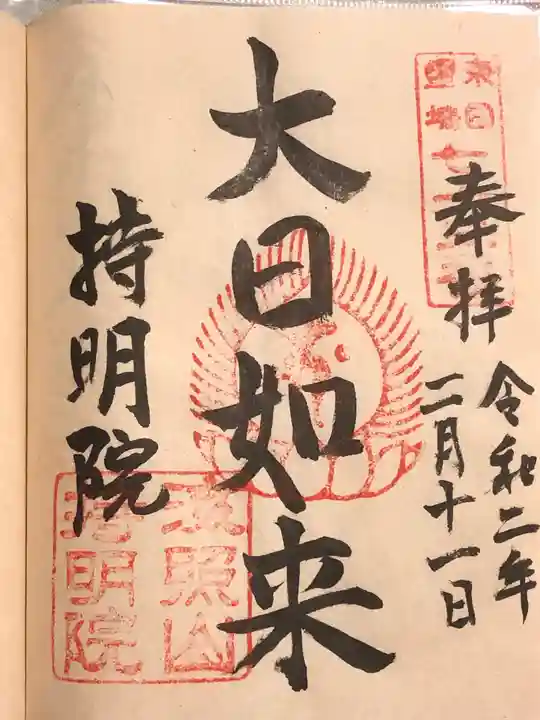 奉拝
令和二年
二月十一日
大日如来
持明院
照山
持明院